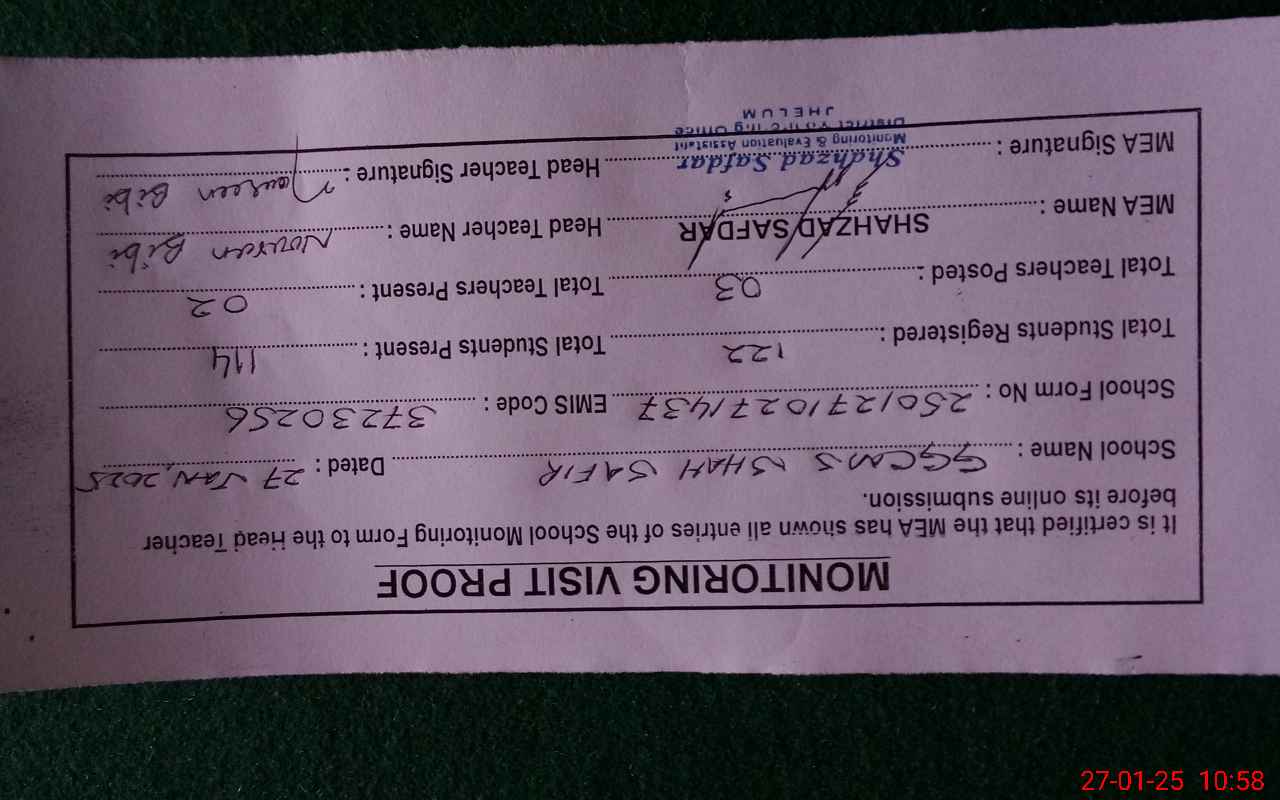 MONITORING VISIT PROOF
It is certified that the MEA has shown all entries of the School Monitoring Form to the Head Teacher
before its online submission.
School Name : GGCMS SHAH SAFIR Dated : 27 JAN, 2025
School Form No : 250127/0271437 EMIS Code : 37230256
Total Students Registered : 122 Total Students Present : 114
Total Teachers Posted : 03 Total Teachers Present : 02
MEA Name : SHAHZAD SAFDAR Head Teacher Name : Noureen Bibi
MEA Signature : Head Teacher Signature : Noureen Bibi
Shahzad Safdar
Monitoring & Evaluation Assistant
District Monitoring Office
JHELUM
27-01-25 10:58